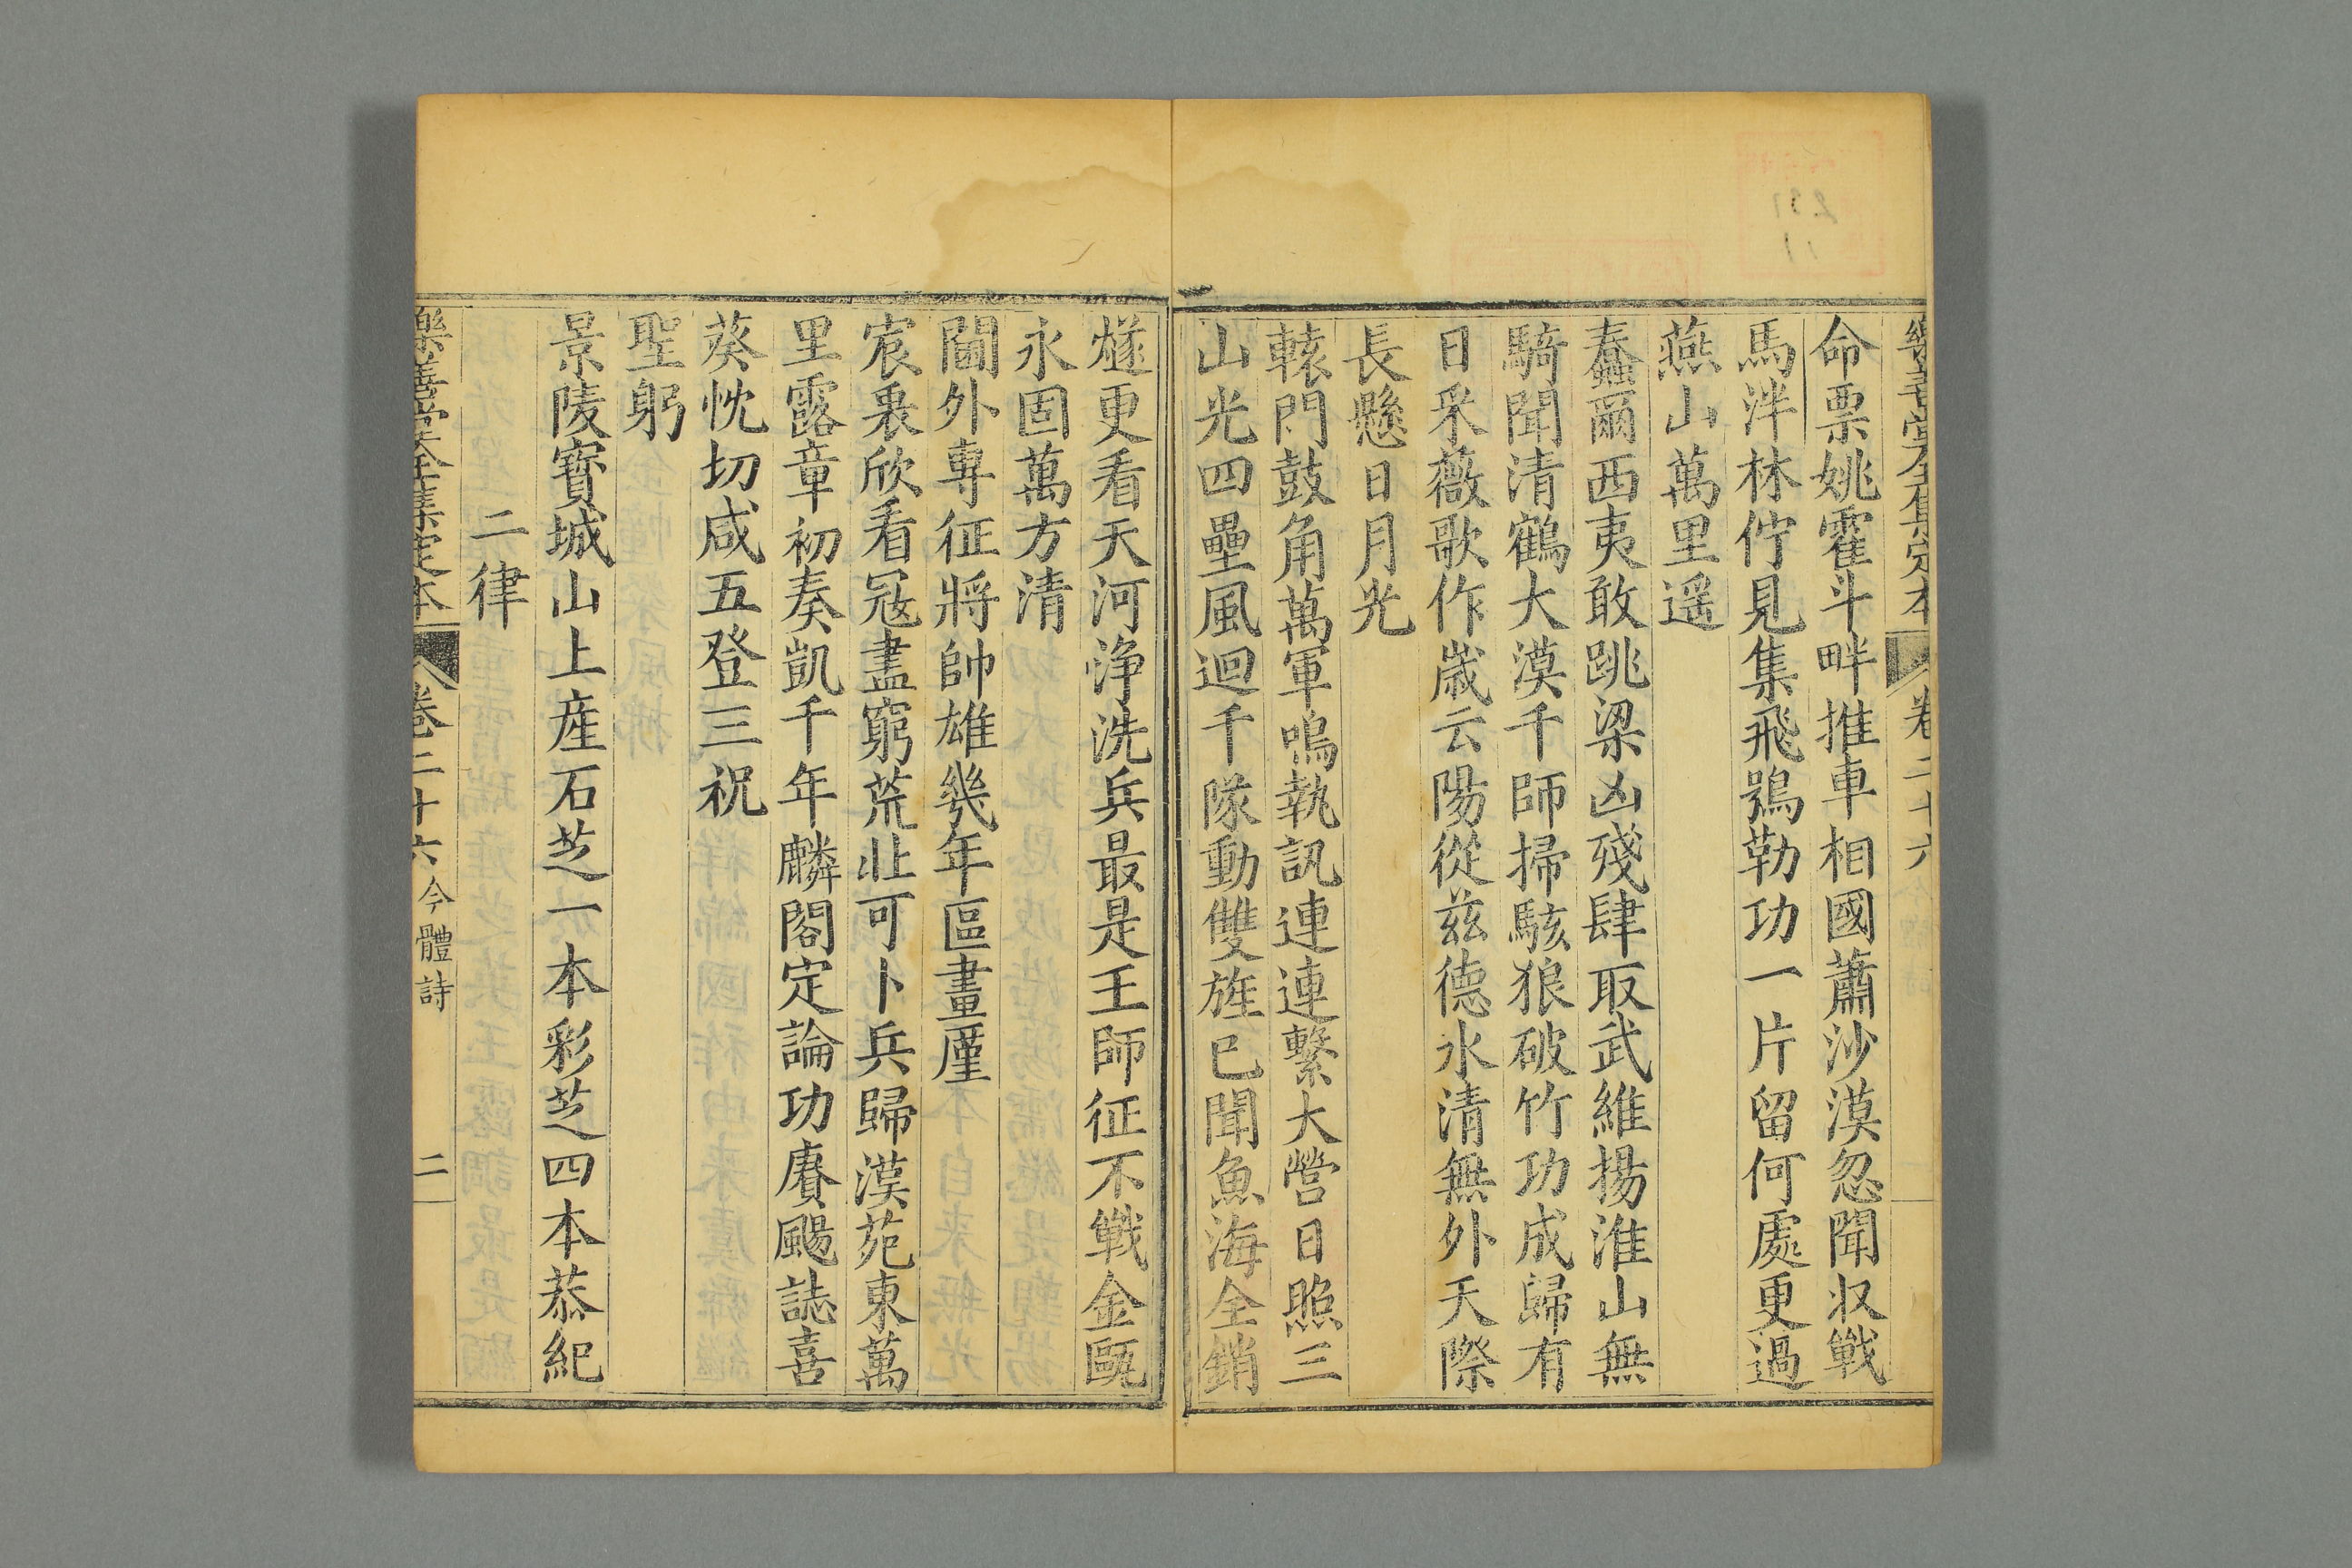 樂善堂全集定本 卷二十六
命票姚霍斗畔推車相國蕭沙漠忽聞収戰
馬泮林佇見集飛鴞勒功一片留何處更過
燕山萬里遥
蠢爾西夷敢跳梁凶殘肆取武維揚淮山無
騎聞清鶴大漠千師掃駭狼破竹功成歸有
日采薇歌作嵗云陽從兹德水清無外天際
長懸日月光
轅門鼓角萬軍鳴執訊連連繫大營日照三
山光四壘風迴千隊動雙旌已聞魚海全銷
燧更看天河淨洗兵最是王師征不戰金甌
永固萬方清
閫外專征將帥雄幾年區畫廑
宸衷欣看冦盡窮荒北可卜兵歸漠苑東萬
里露章初奏凱千年麟閣定論功賡颺誌喜
葵忱切咸五登三祝
聖躬
景陵寶城山上産石芝一本彩芝四本恭紀
二律
樂善堂全集定本 卷二十六 今體詩 二